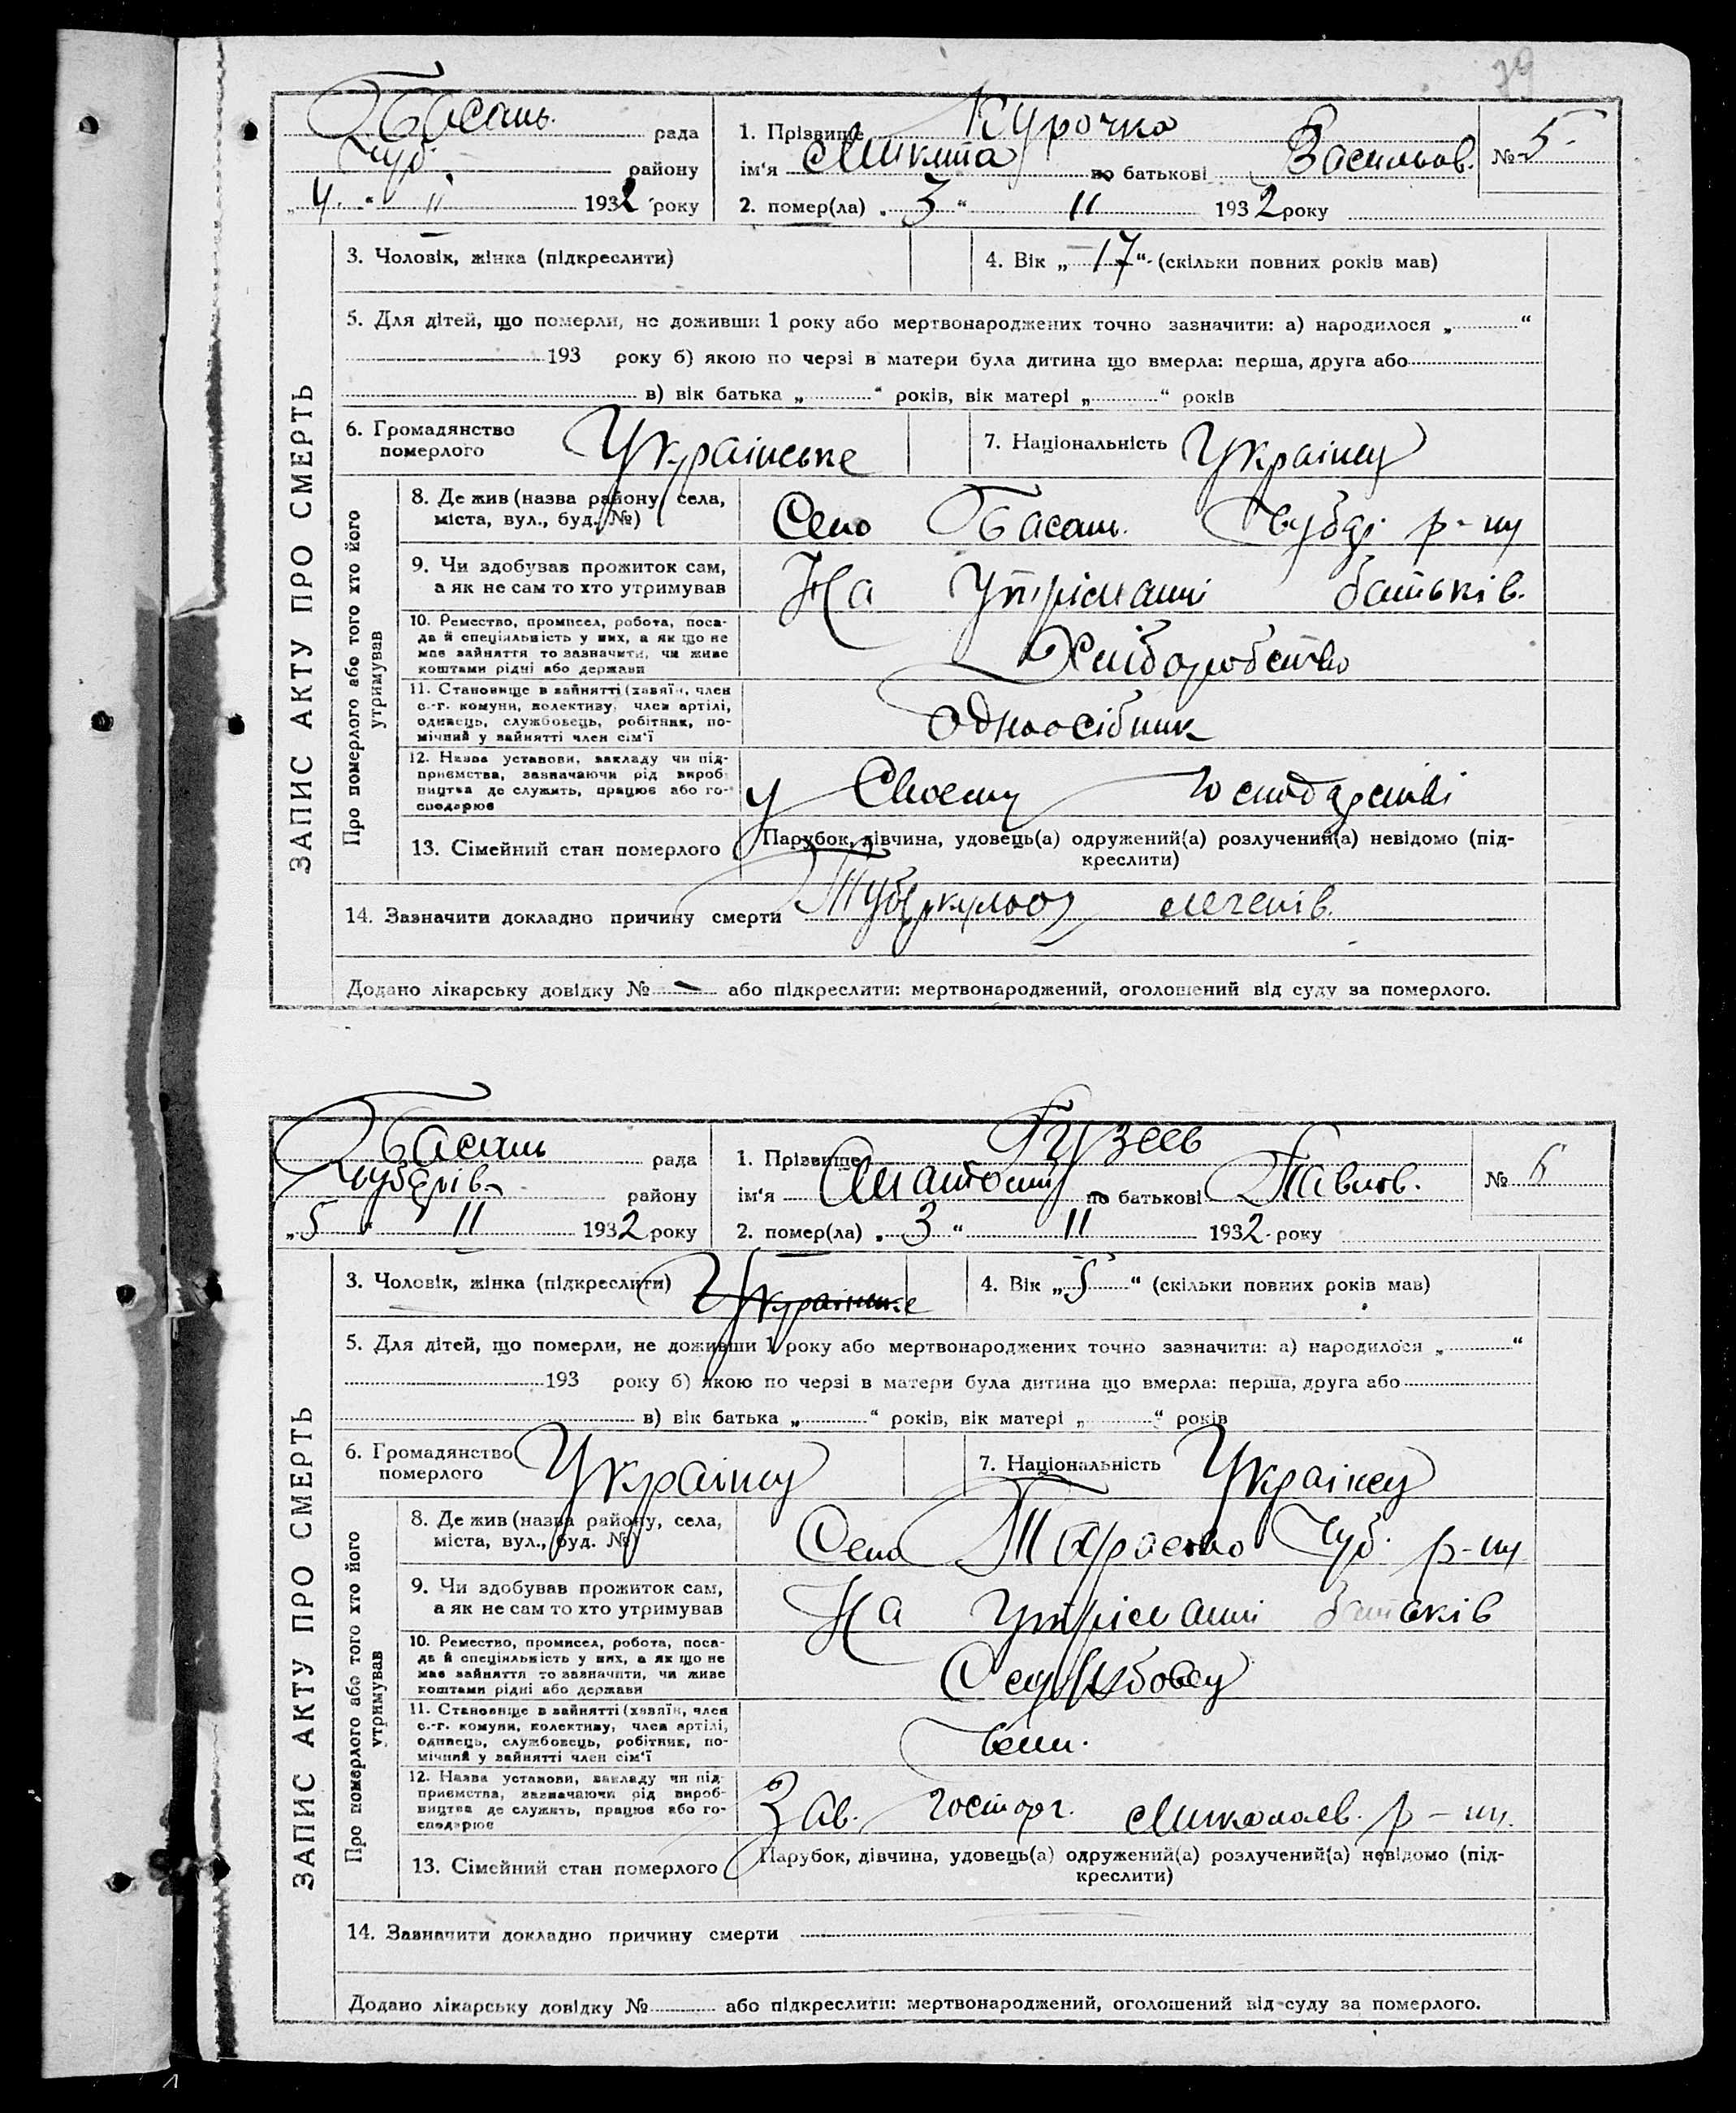 79
Басань рада
Чуб. району
„4.“ II 1932 року
1. Прізвище Курочка
ім‘я Микита по батькові Васильов.
№ 5
2. помер(ла) „3“ II 1932 року
ЗАПИС АКТУ ПРО СМЕРТЬ
3. Чоловік, жінка (підкреслити)
4. Вік „17“ (скільки повних років мав)
5. Для дітей, що померли, не доживши 1 року або мертвонароджених точно зазначити: а) народилося „ “
193 року б) якою по черзі в матери була дитина що вмерла: перша, друга або
в) вік батька „ “ років, вік матері „ “ років
6. Громадянство померлого Українське
7. Національність Українец
Про померлого або того хто його утримував
8. Де жив (назва району, села,
міста, вул., буд. №)
Село Басань р-ну
9. Чи здобував прожиток сам,
а як не сам то хто утримував
На утріманні батьків.
10. Ремество, промисел, робота, поса-
да й спеціяльність у них, а як що не
має зайняття то зазначити, чи живе
коштами рідні або держави
Хліборобство
11. Становище в зайнятті (хазяїн, член
с.-г. комуни, колективу, член артілі,
одинець, службовець, робітник, по-
мічний у зайнятті член сім‘ї
Одноосібник
12. Назва установи, закладу чи під-
приємства, зазначаючи рід вироб-
ництва де служить, працює або го-
сподарює
у Своему господарстві
13. Сімейний стан померлого
Парубок, дівчина, удовець(а) одружений(а) розлучений(а) невідомо (під-
креслити)
14. Зазначити докладно причину смерти Туберкульоз легенів.
Додано лікарську довідку № – або підкреслити: мертвонароджений, оголошений від суду за померлого.
Басань рада
Чубарів. району
„5“ II 1932 року
1. Прізвище Гузеев
ім‘я Анатоний по батькові Павлов.
№ 6
2. помер(ла) „3“ II 1932 року
ЗАПИС АКТУ ПРО СМЕРТЬ
3. Чоловік, жінка (підкреслити) Українське
4. Вік „5“ (скільки повних років мав)
5. Для дітей, що померли, не доживши 1 року або мертвонароджених точно зазначити: а) народилося „ “
193 року б) якою по черзі в матери була дитина що вмерла: перша, друга або
в) вік батька „ “ років, вік матері „ “ років
6. Громадянство померлого Українец
7. Національність Українец
Про померлого або того хто його утримував
8. Де жив (назва району, села,
міста, вул., буд. №)
Село Чуб. р-ну
9. Чи здобував прожиток сам,
а як не сам то хто утримував
На утріманні батьків
10. Ремество, промисел, робота, поса-
да й спеціяльність у них, а як що не
має зайняття то зазначити, чи живе
коштами рідні або держави
Службовец
11. Становище в зайнятті (хазяїн, член
с.-г. комуни, колективу, член артілі,
одинець, службовець, робітник, по-
мічний у зайнятті член сім‘ї
12. Назва установи, закладу чи під-
приємства, зазначаючи рід вироб-
ництва де служить, працює або го-
сподарює
Зав. госторг. Миколаев. р-ну.
13. Сімейний стан померлого
Парубок, дівчина, удовець(а) одружений(а) розлучений(а) невідомо (під-
креслити)
14. Зазначити докладно причину смерти
Додано лікарську довідку № або підкреслити: мертвонароджений, оголошений від суду за померлого.